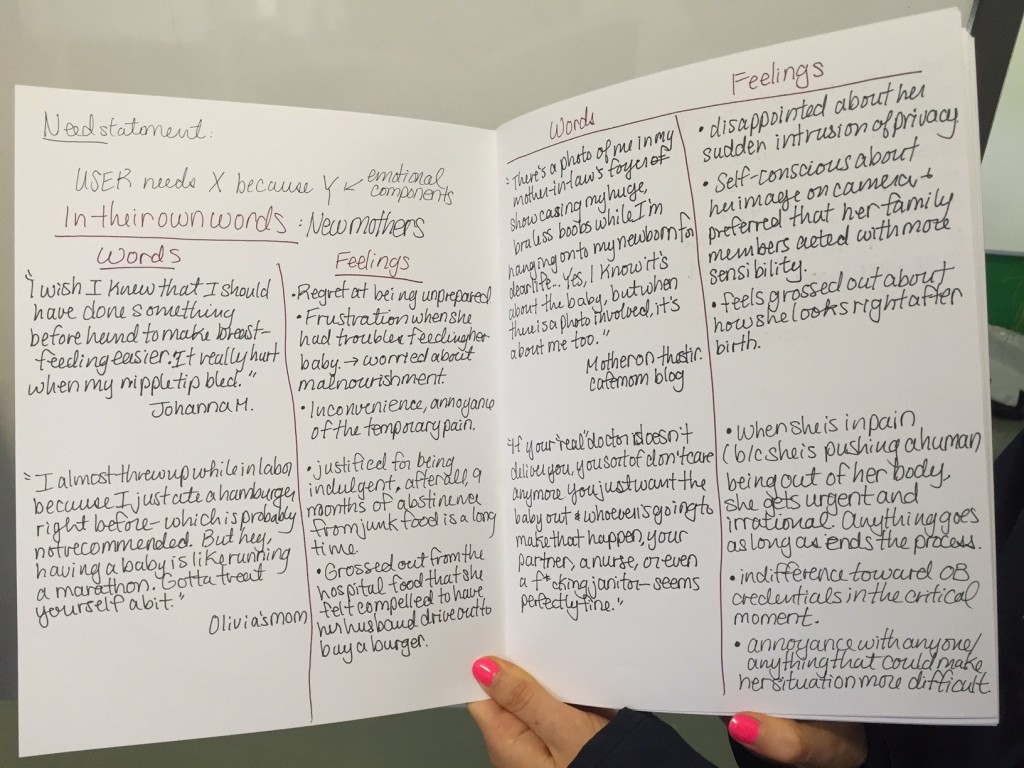 Need statement:
USER needs X because Y ↙ emotional
components
In their own words: New mothers
Words
"I wish I knew that I should
have done something
before hand to make breast-
feeding easier. It really hurt
when my nipple tip bled."
Johanna M.
"I almost threw up while in labor
because I just ate a hamburger
right before - which is probably
not recommended. But hey,
having a baby is like running
a marathon. Gotta treat
yourself a bit."
Olivia's mom
Feelings
• Regret at being unprepared
• Frustration when she
had troubles feeding her
baby. → worried about
malnourishment.
• Inconvenience, annoyance
of the temporary pain.
• justified for being
indulgent, after all, 9
months of abstinence
from junk food is a long
time.
• Grossed out from the
hospital food that she
felt compelled to have
her husband drive out to
buy a burger.
Words
"There's a photo of me in my
mother-in-law's foyer of
showcasing my huge,
braless boobs while I'm
hanging onto my newborn for
dear life... Yes, I know it's
about the baby, but when
there is a photo involved, it's
about me too."
Mother on thestir.
cafemom blog
"If your "real" doctor doesn't
deliver you, you sort of don't care
anymore you just want the
baby out & whoever is going to
make that happen, your
partner, a nurse, or even
a f*cking janitor - seems
perfectly fine."
Feelings
• disappointed about her
sudden intrusion of privacy
• Self-conscious about
her image on camera, &
preferred that her family
members acted with more
sensibility.
• feels grossed out about
how she looks right after
birth.
• When she is in pain
(b/c she's pushing a human
being out of her body,
she gets urgent and
irrational. Anything goes
as long as ends the process.
• indifference toward OB
credentials in the critical
moment.
• annoyance with anyone/
anything that could make
her situation more difficult.